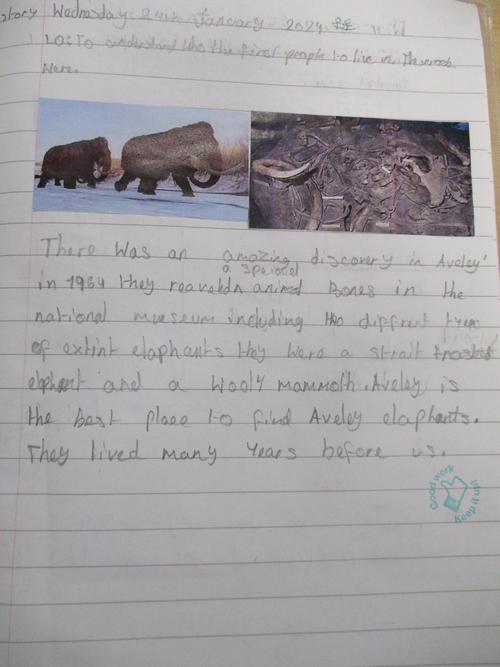 story Wednesday 24th January 2024
LO: To understand who the first people to live in Thurrock
were.
There was an amazing discovery in Aveley'
a speicel
in 1964 they reaveldn animel Bones in the
national museum including two diffrent tyeas
of extint elaphants they were a strait
elphant and a wooly mammoth. Aveley is
the best place to find Aveley elaphants.
They lived many years before us.
Good work
Keep it up!